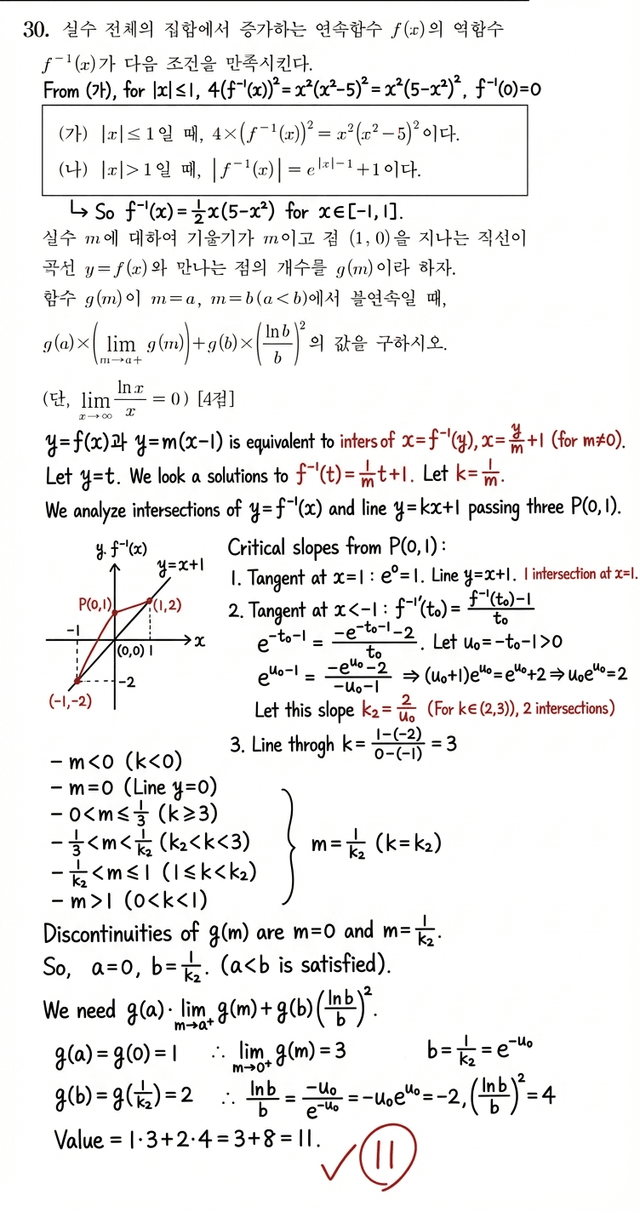 30. 실수 전체의 집합에서 증가하는 연속함수 f(x)의 역함수
f⁻¹(x)가 다음 조건을 만족시킨다.
From (가), for |x|≤1, 4(f⁻¹(x))²=x²(x²-5)²=x²(5-x²)², f⁻¹(0)=0
(가) |x|≤1일 때, 4×(f⁻¹(x))²=x²(x²-5)²이다.
(나) |x|>1일 때, |f⁻¹(x)|=e^{|x|-1}+1이다.
↳ So f⁻¹(x)=½x(5-x²) for x∈[-1,1].
실수 m에 대하여 기울기가 m이고 점 (1, 0)을 지나는 직선이
곡선 y=f(x)와 만나는 점의 개수를 g(m)이라 하자.
함수 g(m)이 m=a, m=b(a<b)에서 불연속일 때,
g(a)×(lim_{m→a+} g(m))+g(b)×(ln b/b)²의 값을 구하시오.
(단, lim_{x→∞} ln x/x=0) [4점]
y=f(x)과 y=m(x-1) is equivalent to inters of x=f⁻¹(y), x=y/m+1 (for m≠0).
Let y=t. We look a solutions to f⁻¹(t)=1/m t+1. Let k=1/m.
We analyze intersections of y=f⁻¹(x) and line y=kx+1 passing three P(0,1).
y. f⁻¹(x)
y=x+1
P(0,1)
(1,2)
-1
(0,0)
1
x
-2
(-1,-2)
Critical slopes from P(0,1):
1. Tangent at x=1: e⁰=1. Line y=x+1. 1 intersection at x=1.
2. Tangent at x<-1: f⁻¹'(t₀)=(f⁻¹(t₀)-1)/t₀
e^{-t₀-1}=(-e^{-t₀-1}-2)/t₀. Let u₀=-t₀-1>0
e^{u₀-1}=(-e^{u₀}-2)/(-u₀-1) ⇒(u₀+1)e^{u₀}=e^{u₀}+2⇒u₀e^{u₀}=2
Let this slope k₂=2/u₀ (For k∈(2,3)), 2 intersections)
3. Line throgh k=(1-(-2))/(0-(-1))=3
- m<0 (k<0)
- m=0 (Line y=0)
- 0<m≤1/3 (k≥3)
- 1/3<m<1/k₂ (k₂<k<3)
- 1/k₂<m≤1 (1≤k<k₂)
- m>1 (0<k<1)
m=1/k₂ (k=k₂)
Discontinuities of g(m) are m=0 and m=1/k₂.
So, a=0, b=1/k₂. (a<b is satisfied).
We need g(a)·lim_{m→a⁺} g(m)+g(b)(ln b/b)².
g(a)=g(0)=1 ∴ lim_{m→0⁺} g(m)=3 b=1/k₂=e^{-u₀}
g(b)=g(1/k₂)=2 ∴ ln b/b=-u₀/e^{-u₀}=-u₀e^{u₀}=-2, (ln b/b)²=4
Value=1·3+2·4=3+8=11.
✓ 11